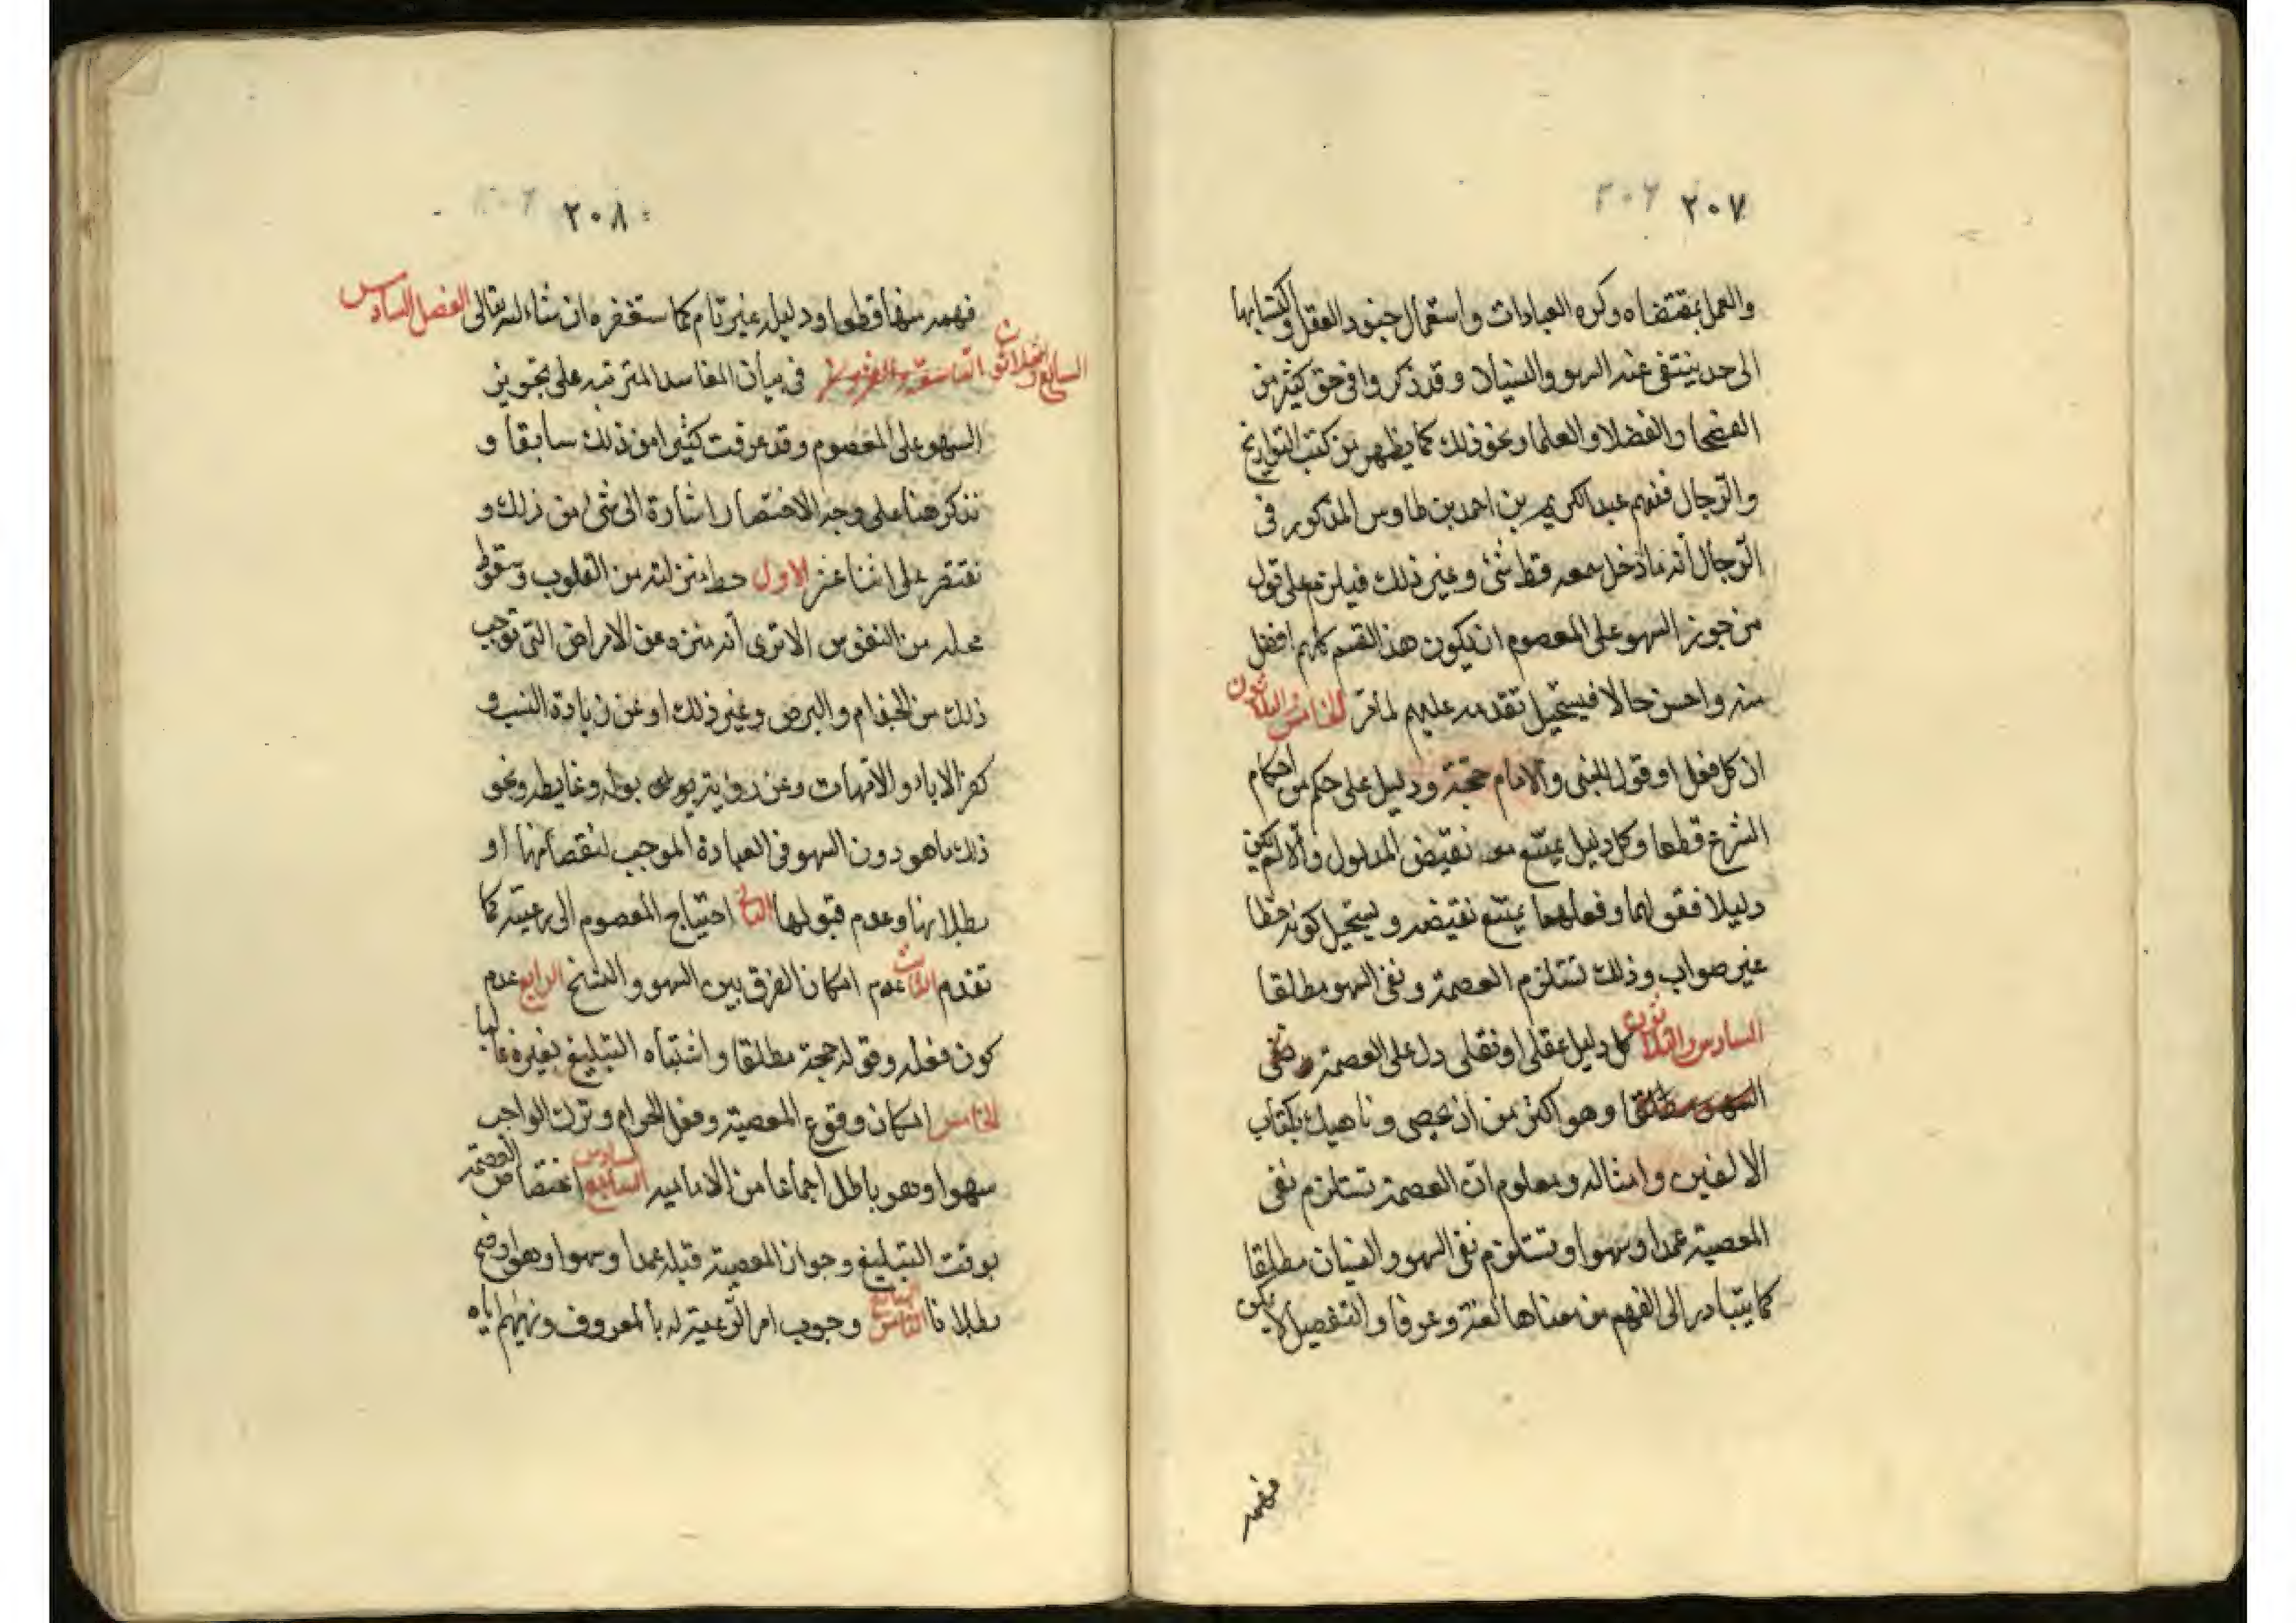 ٢٠٧ ٢٠٦
والعمل بمقتضاه وكره العبادات واستعمال جنود العقل واكتسابها
الى حد ينتفى عنه السهو والنسيان وقد ذكروا فى حق كثير من
الفصحا والفضلا والعلما ونحو ذلك كما يظهر من كتب التواريخ
والرجال فمنهم عبد الكريم بن احمد بن طاوس المذكور فى
الرجال أنه ما دخل سمعه قط شئ وغير ذلك فيلزم على قول
من جوز السهو على المعصوم ان يكون هذا القسم كلهم افضل
منه واحسن حالا فيستحيل تقدمه عليهم لما مر الخامس والثلاثون
ان كل فعل او قول للنبى والامام حجة ودليل على حكم من احكام
الشرع قطعا وكل دليل يمتنع معه نقيض المدلول والا لم يكن
دليلا فقولهما وفعلهما يمتنع نقيضه ويستحيل كونه خطا
غير صواب وذلك تستلزم العصمة ونفى السهو مطلقا
السادس والثلاثون كل دليل عقلى او نقلى دل على العصمة و نفى
السهو مطلقا وهو اكثر من ان يحصى وناهيك بكتاب
الالفين وامثاله ومعلوم ان العصمة تستلزم نفى
المعصية عمدا وسهوا وتستلزم نفى السهو والنسيان مطلقا
كما يتبادر الى الفهم من معناها لغة وعرفا والتفصيل لا يكن
فهمه
٢٠٨
فهمه منها قطعا ودليله غير تام كما ستعرفه ان شاء الله تعالى الفصل السادس
السابع والثلاثون التاسعة والعشرون فى بيان المفاسد المترتبه على تجويز
السهو على المعصوم وقد عرفت كثيرا من ذلك سابقا و
نذكر هنا على وجه الاختصار اشارة الى شئ من ذلك و
نقتصر على اثنا عشر الاول حط منزلته من القلوب وسقوط
محله من النفوس الا ترى أنه منزه عن الامراض التى توجب
ذلك من الجذام والبرص وغير ذلك او عن زيادة النسب و
كفر الاباء والامهات وعن رؤية بوله وغايطه ونحو
ذلك ما هو دون السهو فى العبادة الموجب لنقصانها او
بطلانها وعدم قبولها الثانى احتياج المعصوم الى رعيته كما
تقدم الثالث عدم امكان الفرق بين السهو والنسخ الرابع عدم
كون فعله وقوله حجة مطلقا واشتباه التبليغ بغيره غالبا
الخامس امكان وقوع المعصية وفعل الحرام وترك الواجب
سهوا وهو باطل اجماعا من الامامية السابع السادس اختصاص العصمة
بوقت التبليغ وجواز المعصية قبله عمدا وسهوا وهو اوضح
بطلانا الثامن السابع وجوب امر الرعية له بالمعروف ونهيهم اياه